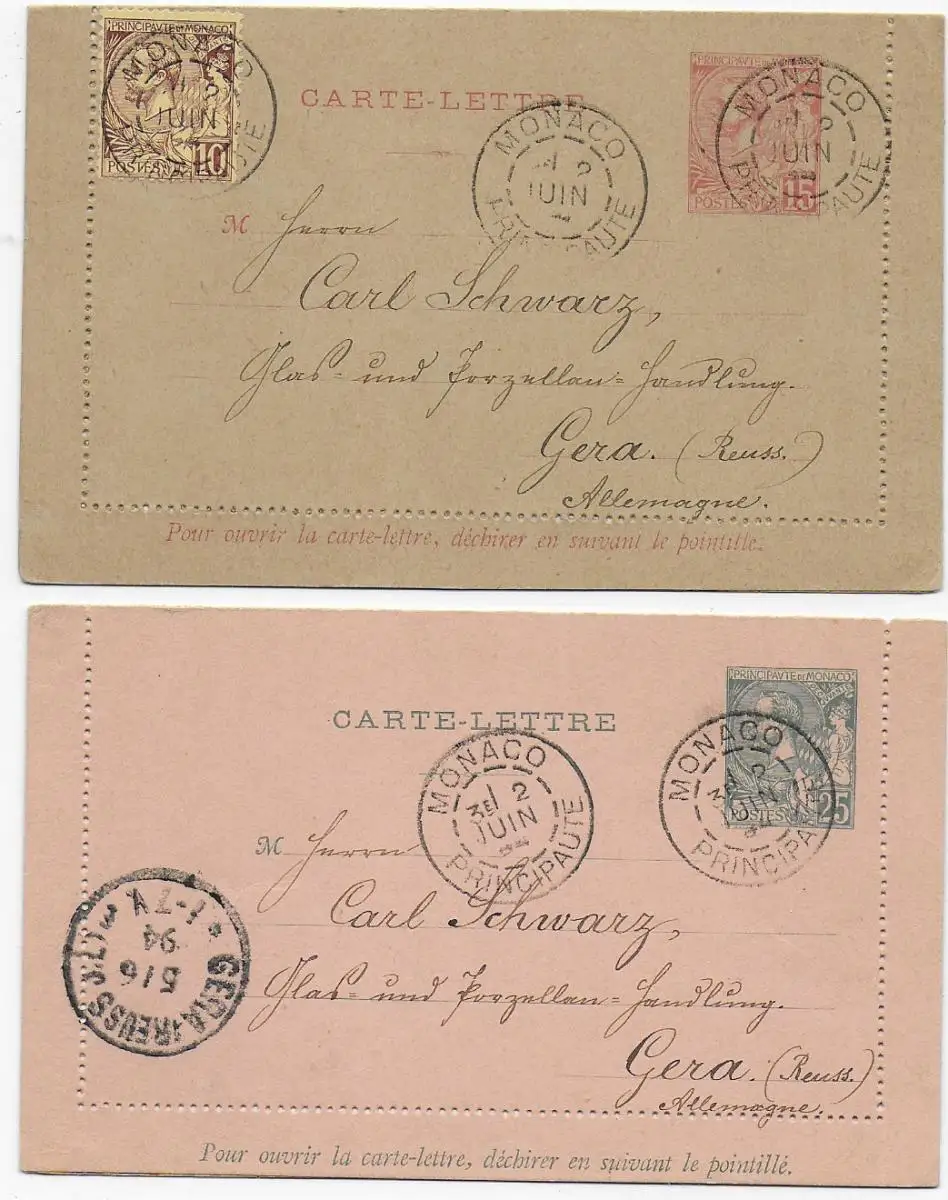 PRINCIPAVTE DE MONACO
POSTES 10
MONACO
2
JUIN
CARTE-LETTRE
MONACO
2
JUIN
PRINCIPAUTE
PRINCIPAVTE
POSTES 15
MONACO
2
JUIN
M Herrn
Carl Schwarz,
Glas- und Porzellan-Handlung.
Gera. (Reuss.)
Allemagne.
Pour ouvrir la carte-lettre, déchirer en suivant le pointillé.
PRINCIPAVTE DE MONACO
POSTES 25
CARTE-LETTRE
MONACO
3E 2
JUIN
PRINCIPAUTE
MONACO
2
JUIN
M Herrn
Carl Schwarz,
GERA (REUSS
5/6
94
Glas- und Porzellan-Handlung.
Gera. (Reuss.)
Allemagne.
Pour ouvrir la carte-lettre, déchirer en suivant le pointillé.